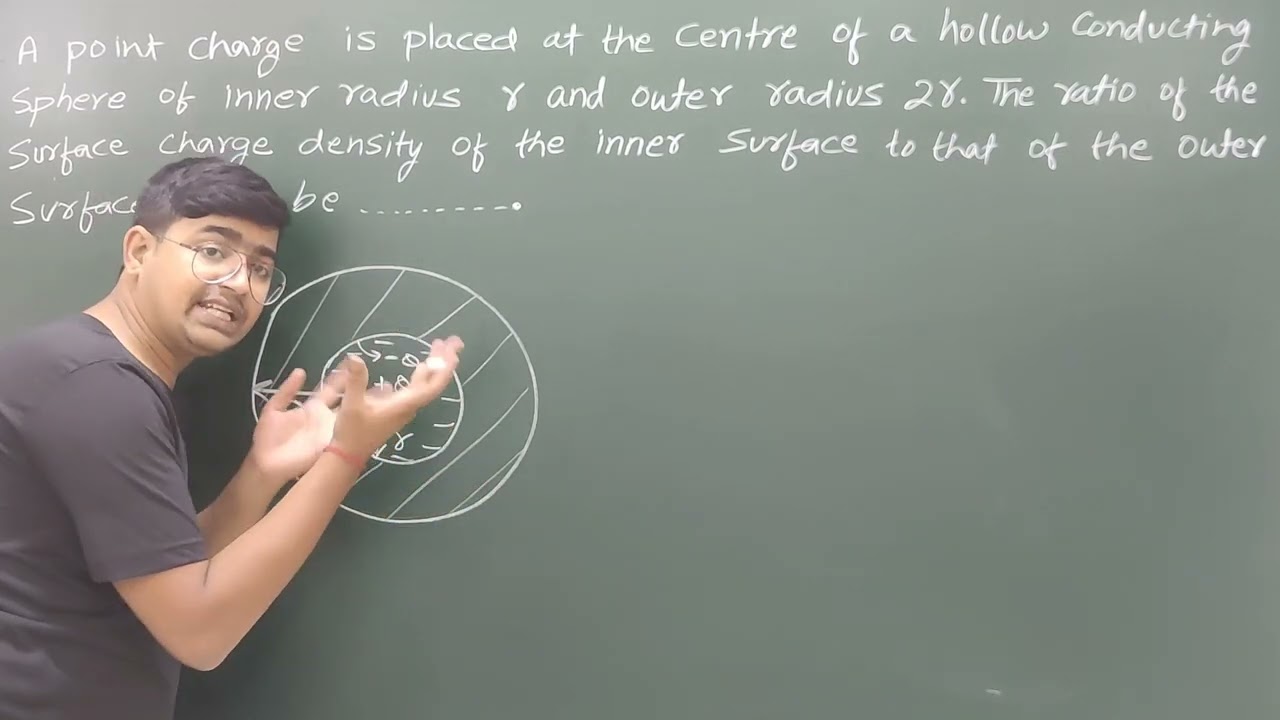 A point charge is placed at the Centre of a hollow Conducting
Sphere of inner radius r and outer radius 2r. The ratio of the
Surface charge density of the inner Surface to that of the outer
Surface be ..........
- Q
+ Q
r